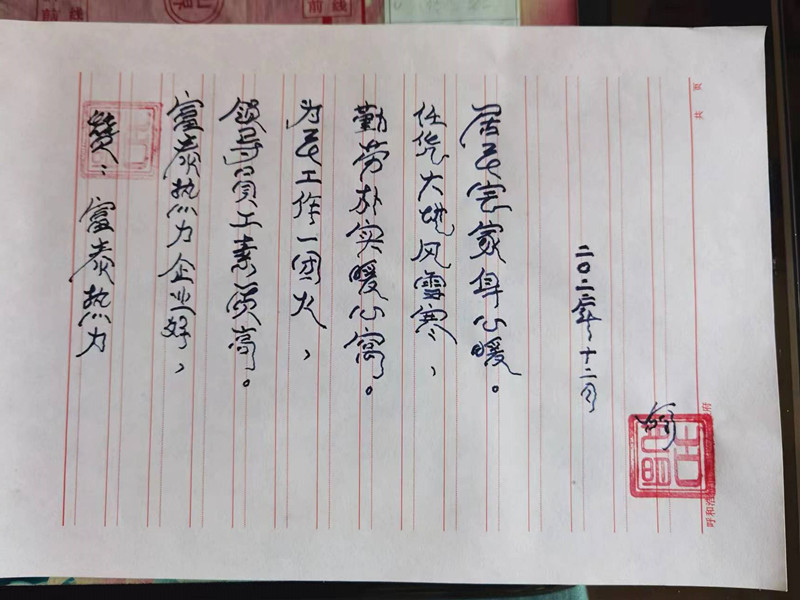 赞：富泰热力
富泰热力企业好，
领导员工素质高。
为民工作一团火，
勤劳朴实暖心窝。
任凭大地风雪寒，
居民室家身心暖。
二〇二二年十二月
共 页
呼和浩
府
前线
前线